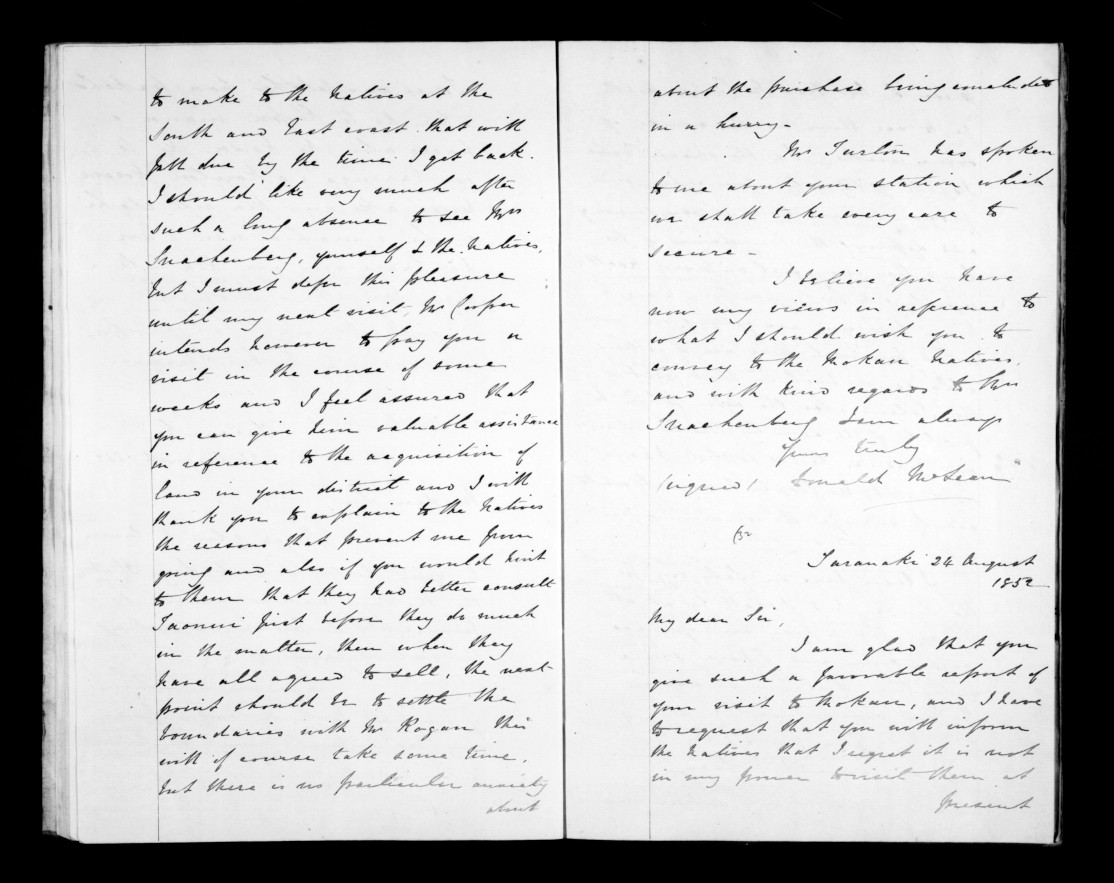 to make to the Natives at the
South and East coast that will
fall due by the time I get back.
I should like very much after
such a long absence to see Mrs
Snachenberg, yourself & the Natives,
but I must defer this pleasure
until my next visit, Mr Cooper
intends however to pay you a
visit in the course of some
weeks and I feel assured that
you can give him valuable assistance
in reference to the acquisition of
land in your district and I will
thank you to explain to the Natives
the reasons that prevent me from
going and also if you would hint
to them that they had better consult
Taonui first before they do much
in the matter, then when they
have all agreed to sell, the next
point should be to settle the
boundaries with Mr Rogan this
will of course take some time,
but there is no particular anxiety
about
about the purchase being concluded
in a hurry -
Mr Turton has spoken
to me about your station which
we shall take every care to
secure -
I believe you have
now my views in reference to
what I should wish you to
convey to the Mokau Natives,
and with kind regards to Mrs
Snachenberg I am always
Yours truly
(signed) Donald McLean"
Taranaki 24 August
1852
My dear Sir,
I am glad that you
give such a favorable report of
your visit to Mokau, and I have
to request that you will inform
the Natives that I regret it is not
in my power to visit them at
present